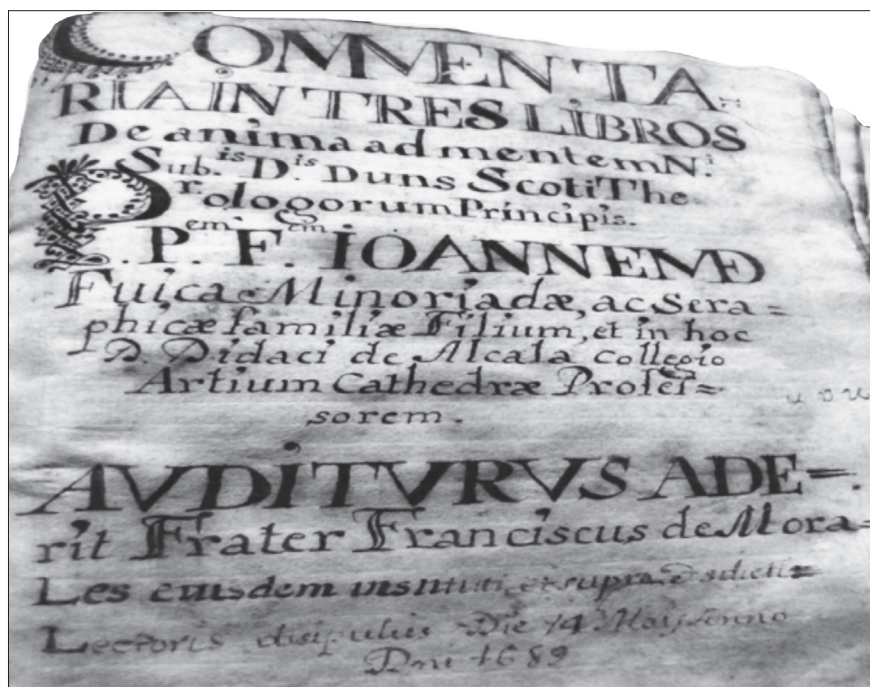 COMMENTA=
RIA IN TRES LIBROS
De anima ad mentem N.i
Sub.is D.is Duns Scoti The
ologorum Principis.
Pr. P.em F.em IOANNEM D
Fuica Minoriadæ, ac Sera=
phicæ familiæ Filium, et in hoc
D. Didaci de Alcala Collegio
Artium Cathedræ Profes=
sorem.
AVDITVRVS ADE=
rit Frater Franciscus de Mora=
Les eiusdem instituti, et supra
Lectoris disipulus Die 14 Maij Anno
Dni 1689